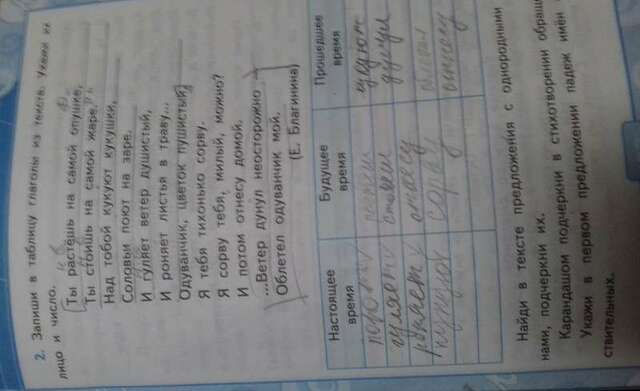 2. Запиши в таблицу глаголы из текста. Укажи их
лицо и число.
Ты растёшь на самой опушке,
Ты стоишь на самой жаре.
Над тобой кукуют кукушки,
Соловьи поют на заре.
И гуляет ветер душистый,
И роняет листья в траву...
Одуванчик, цветок пушистый,
Я тебя тихонько сорву.
Я сорву тебя, милый, можно?
И потом отнесу домой.
...Ветер дунул неосторожно —
Облетел одуванчик мой.
(Е. Благинина)
Настоящее время
Будущее время
Прошедшее время
гуляет
роняет
сорву
Найди в тексте предложения с однородными
нами, подчеркни их.
Карандашом подчеркни в стихотворении обращ
Укажи в первом предложении падеж имён
ствительных.